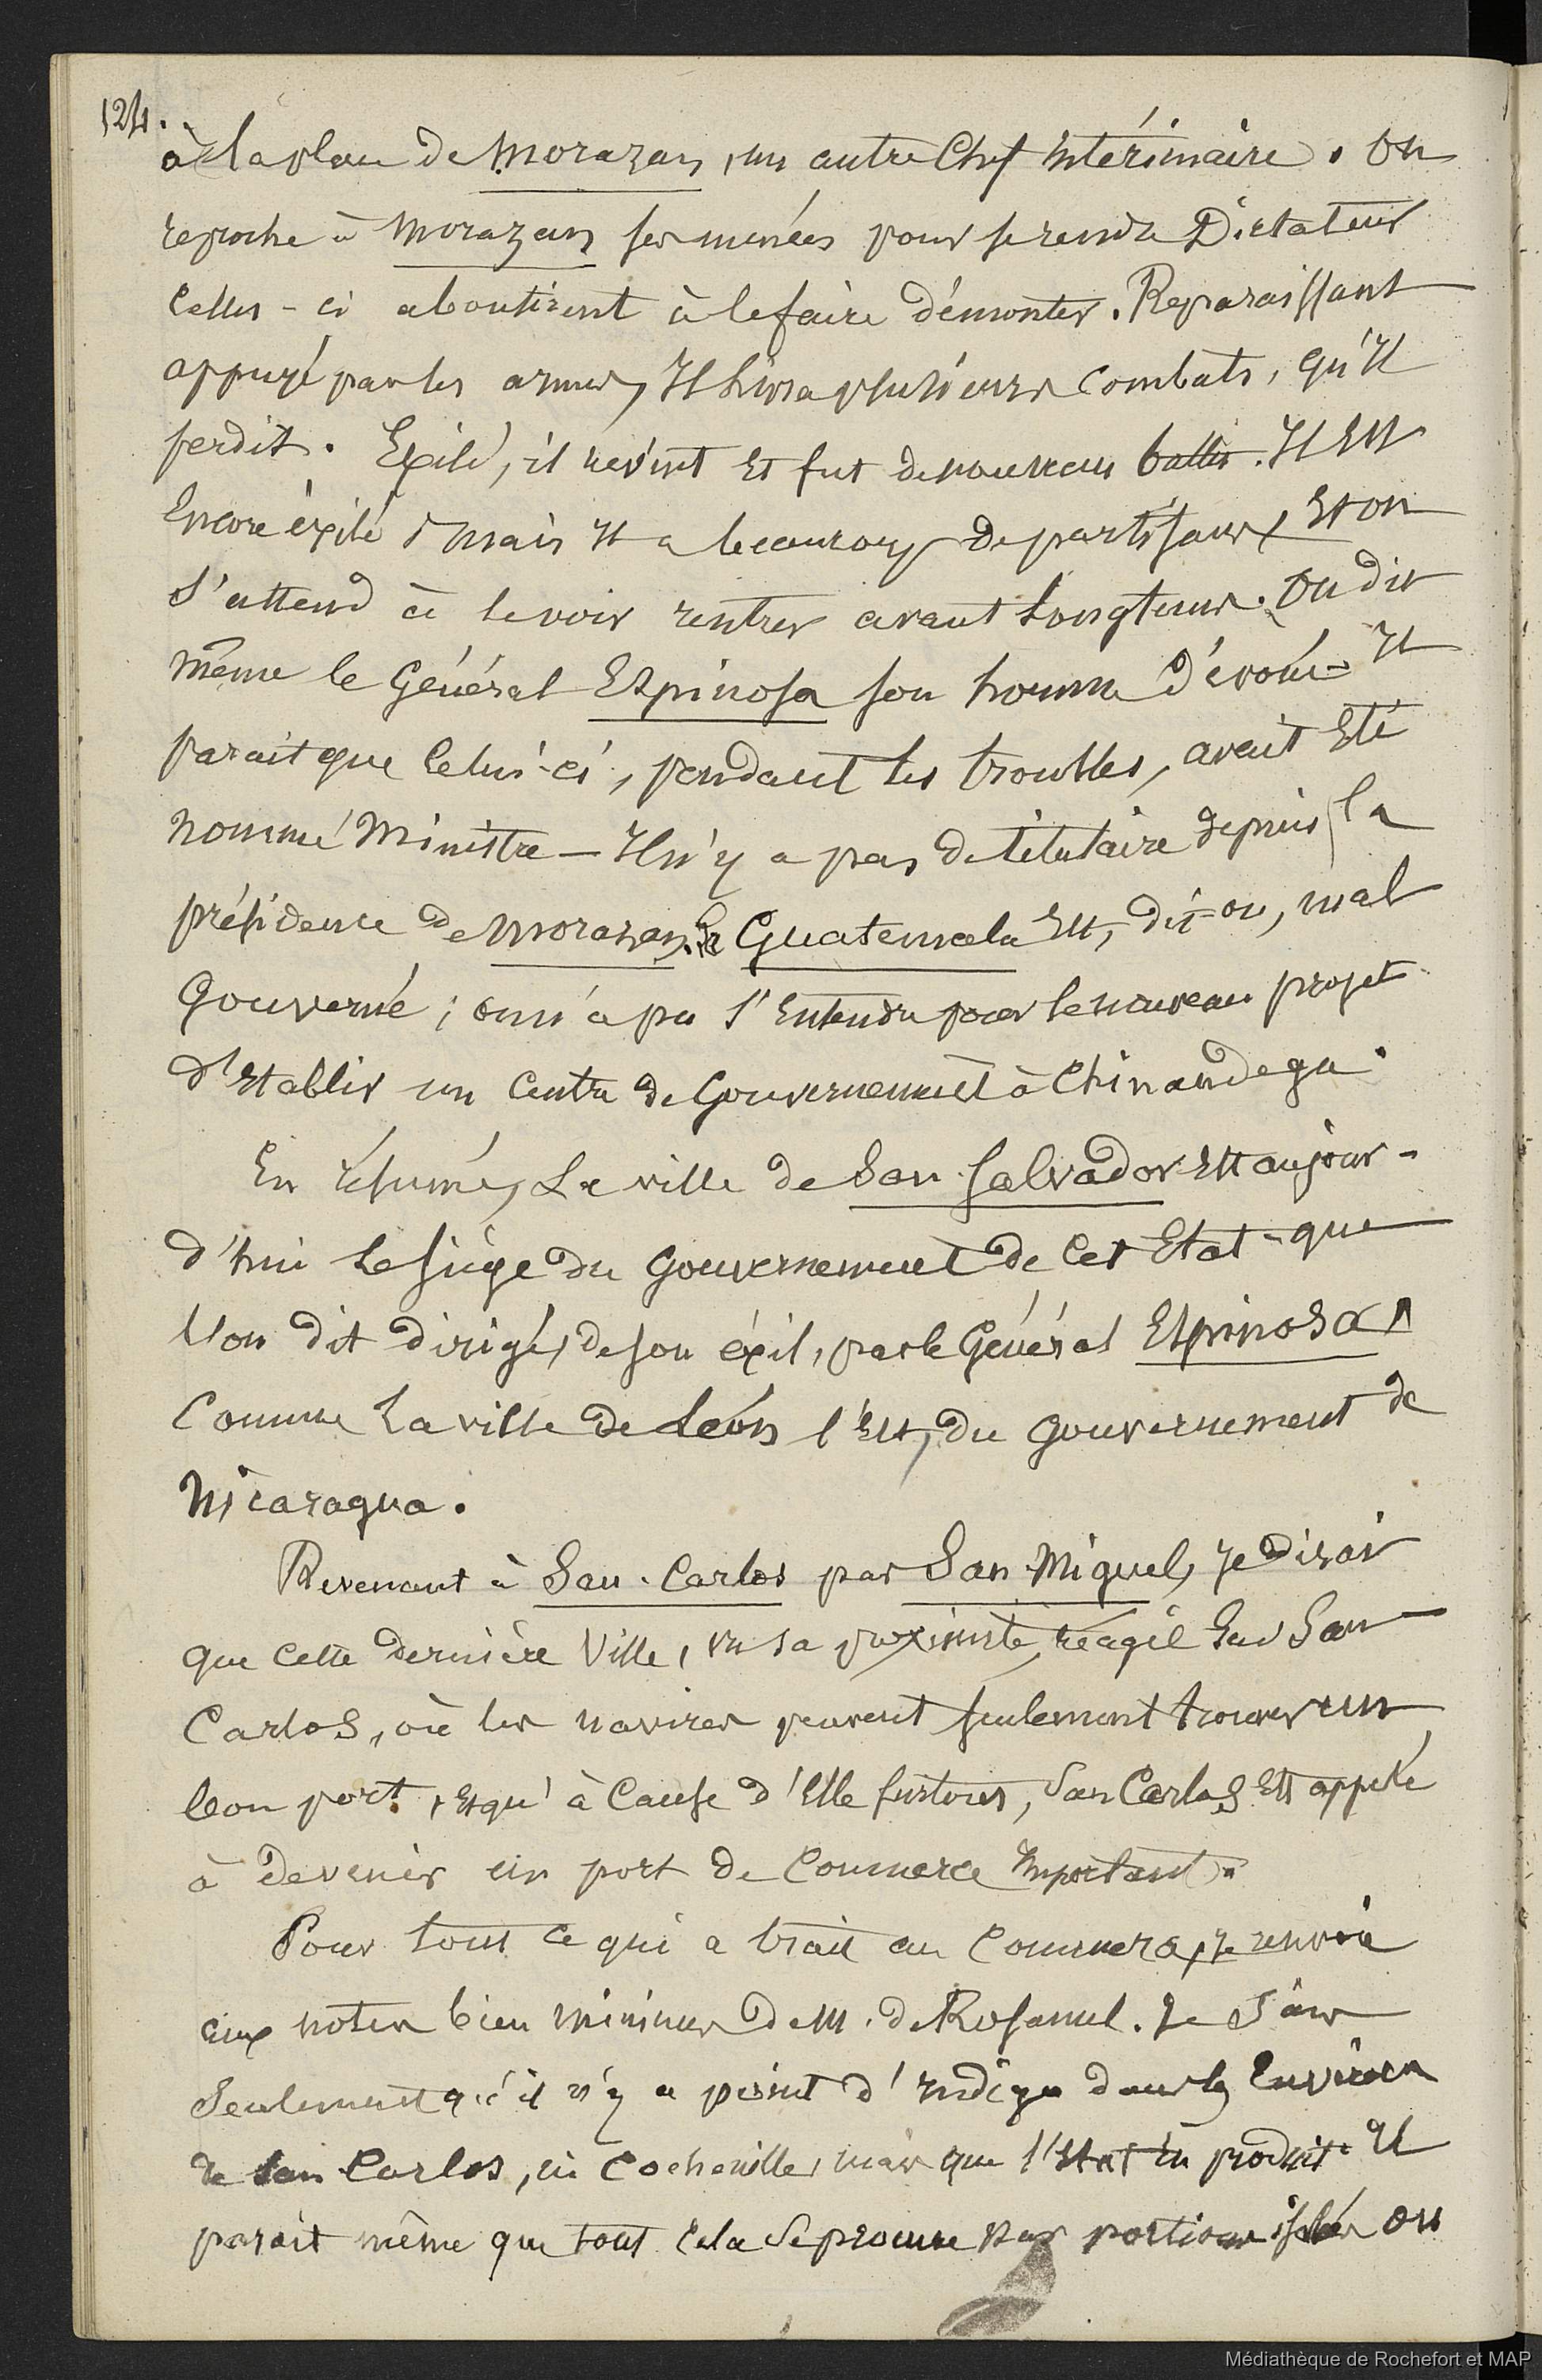 124.
à la place de Morazan, un autre Chef Intérimaire. On
reproche à Morazan ses menées pour se rendre Dictateur
Celles-ci aboutirent à le faire démonter. Reparaissant
appuyé par les armes, Il livra plusieurs Combats, qu'Il
perdit. Exilé, il revint Et fut de nouveau battu. Il Est
Encore éxilé, mais Il a beaucoup de partisans, Et on
s'attend à le voir rentrer avant longtems. On dit
même le Général Espinosa son homme dévoué - Il
parait que Celui-ci, pendant les troubles, avait Eté
nommé Ministre - Il n'y a pas de titulaire depuis la
présidence de Morazan. Le Guatemala Est, dit-on, mal
Gouverné ; on n'a pu s'Entendre pour le nouveau projet
d'Etablir un Centre de Gouvernement à Chinandega.
En résumé, La ville de San Salvador Est aujour-
d'hui le siège du Gouvernement de Cet Etat - que
l'on dit dirigé, de son éxil, par le Général Espinosa,
Comme La ville de Léon l'Est, du Gouvernement de
Nicaragua.
Revenant à San-Carlos par San-Miguel, Je dirai
que Cette dernière Ville, vu sa proximité, réagit sur San
Carlos, où les navires peuvent seulement trouver un
bon port, Et qu'à Cause d'Elle surtout, San Carlos Est appelé
à devenir un port de Commerce Important.
Pour tout ce qui a trait au Commerce, je renvoie
aux notes bien minimes de M. de Rosamel. Je sais
Seulement qu'il n'y a point d'Indigo dans les Environs
de San Carlos, ni Cochenille, mais que l'Etat En produit. Il
parait même que tout Cela Se procure par portions isolées ou
Médiathèque de Rochefort et MAP